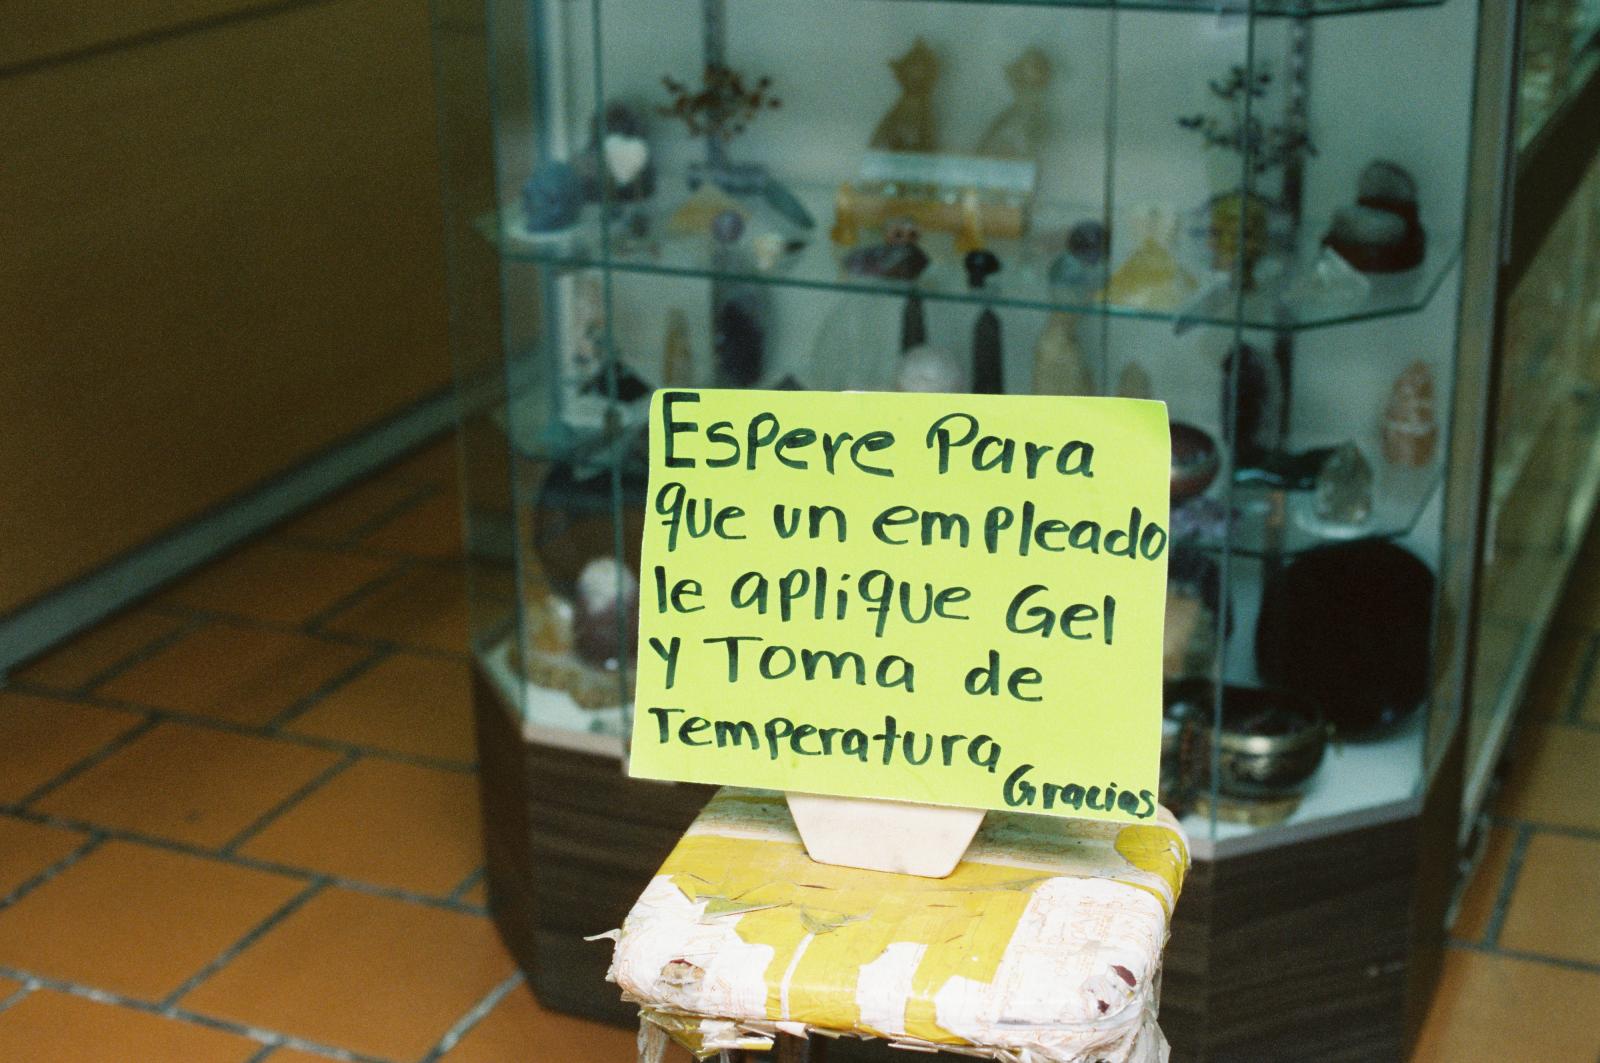 Espere Para
que un empleado
le aplique Gel
y Toma de
Temperatura
Gracias